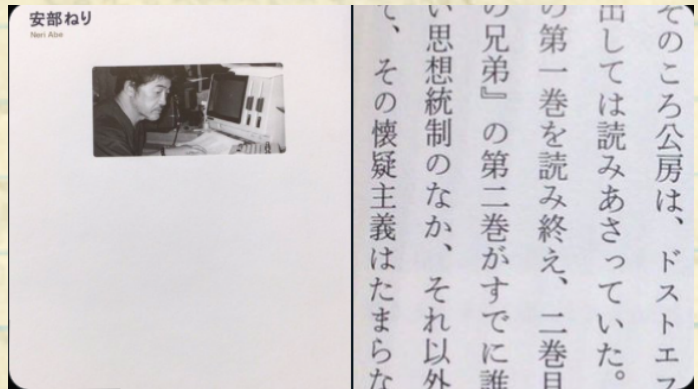 安部ねり
Neri Abe
そのころ公房は、ドストエフ
出しては読みあさっていた。
の第一巻を読み終え、二巻目
の兄弟』の第二巻がすでに誰
い思想統制のなか、それ以外
て、その懐疑主義はたまらな